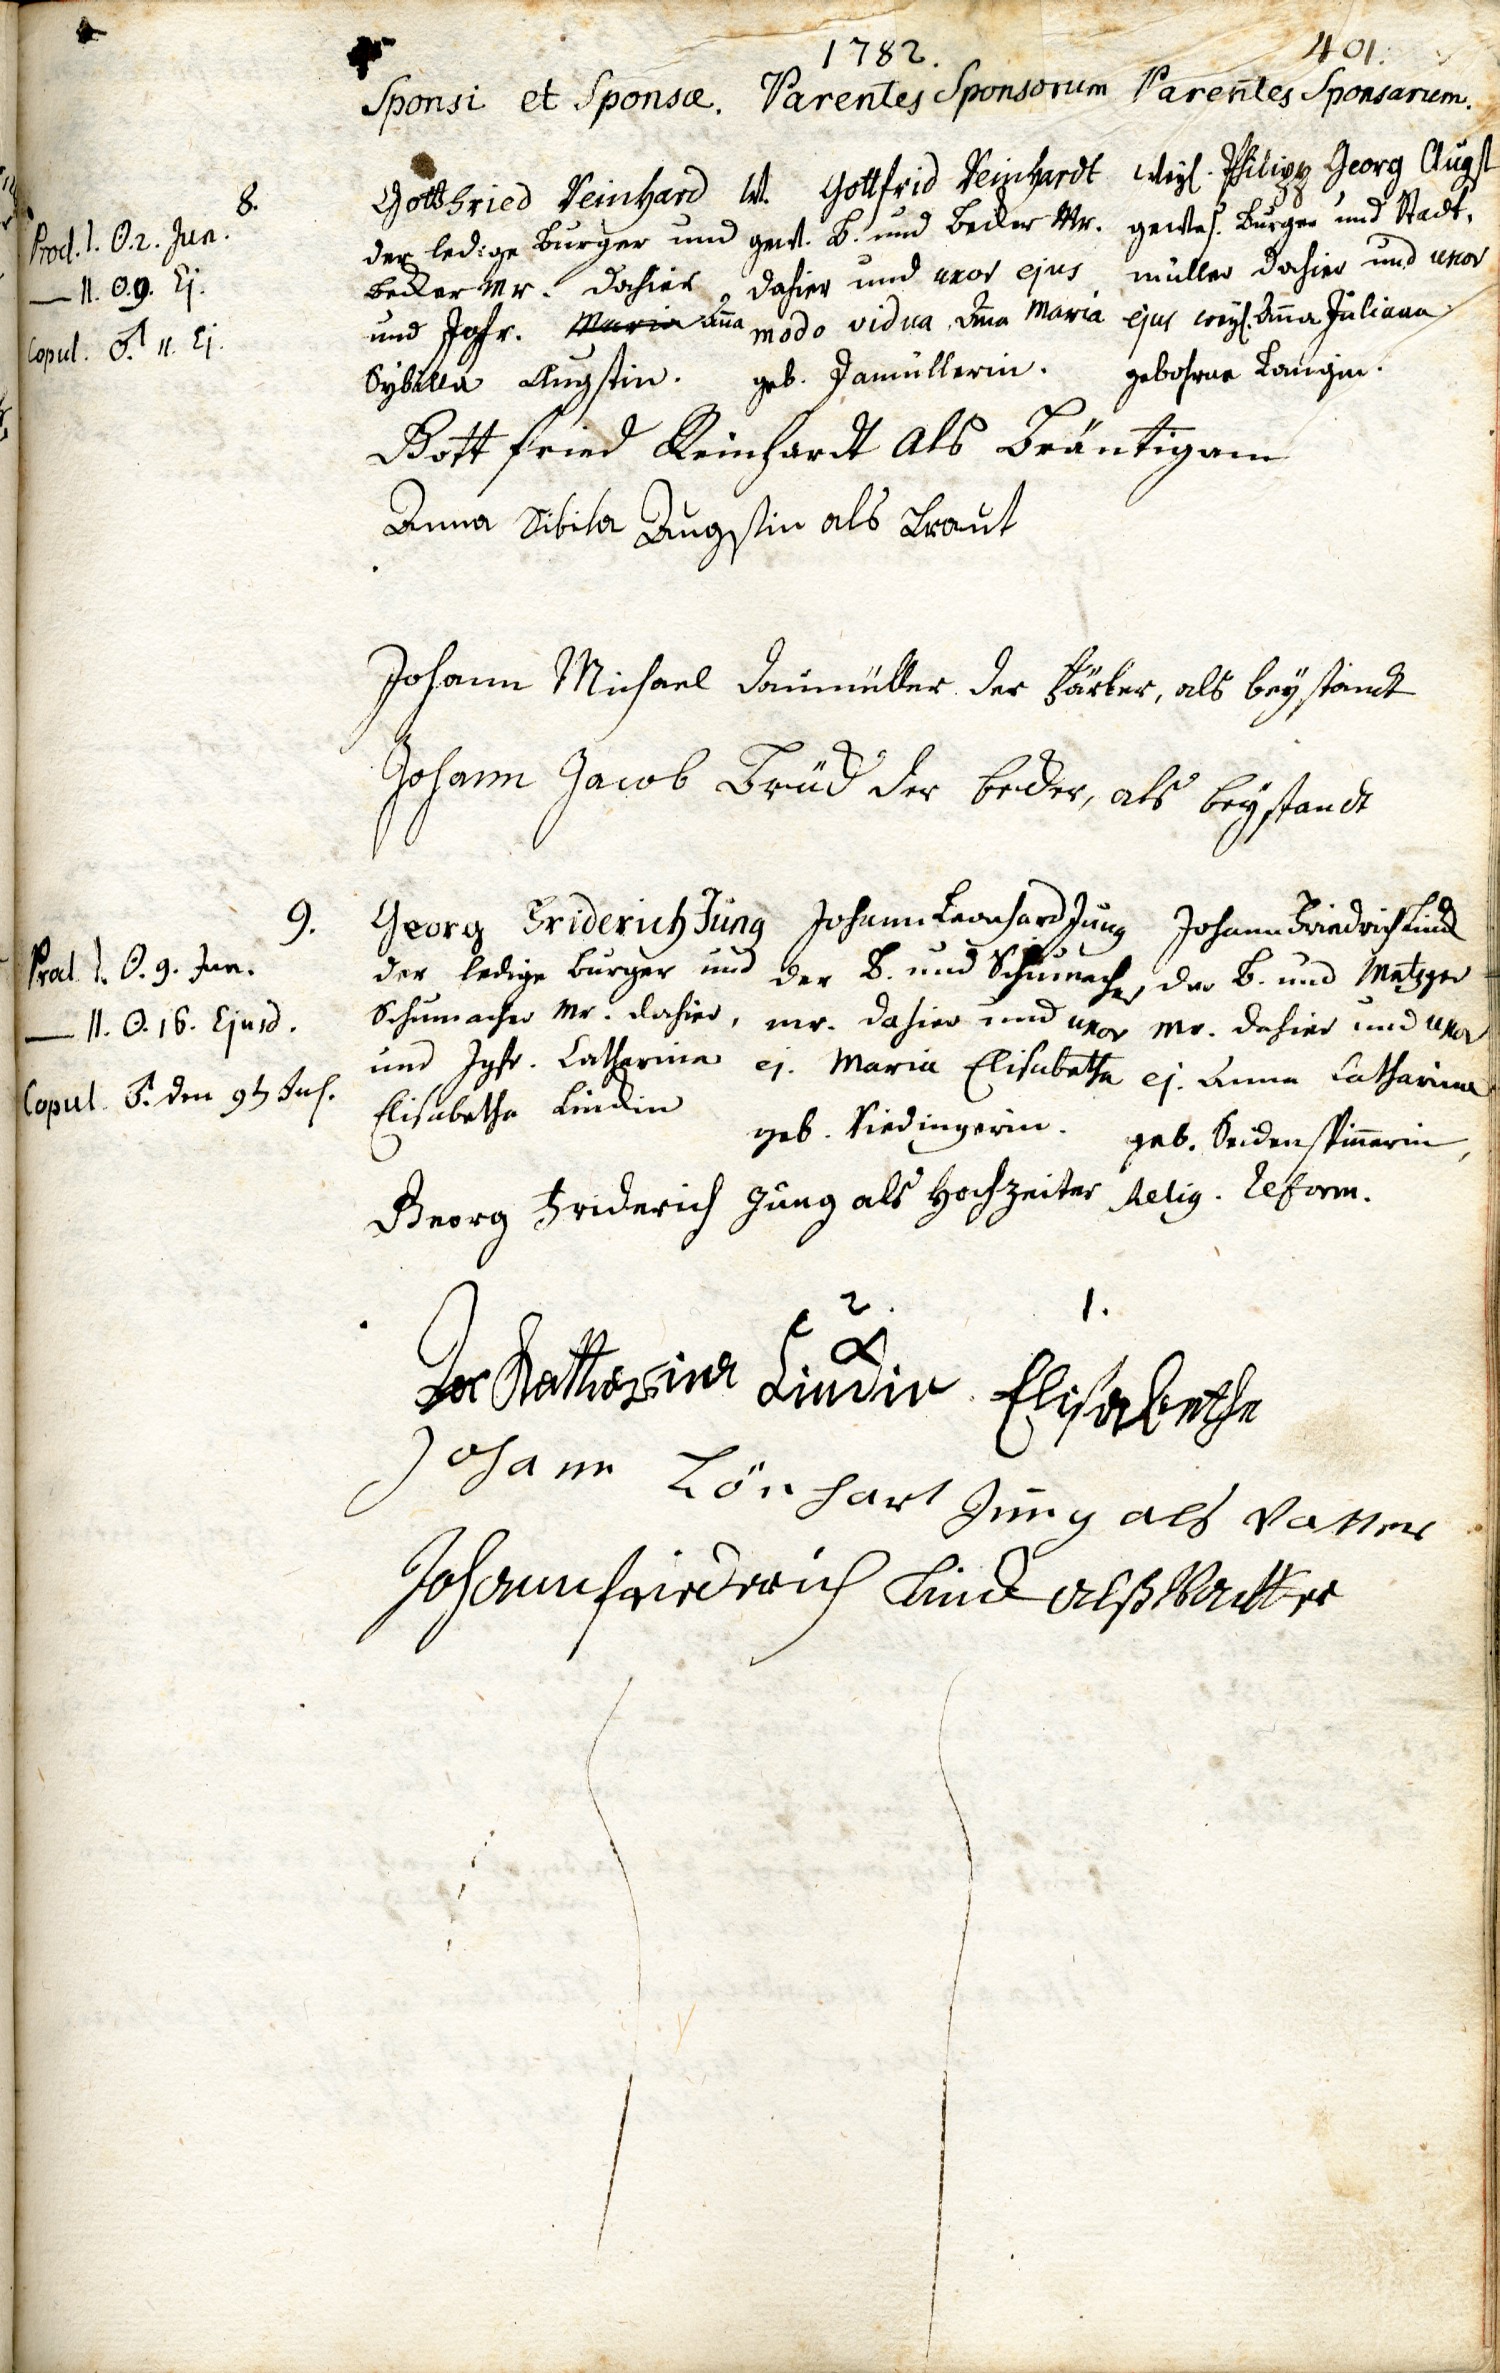 1782.
401.
Sponsi et Sponsæ. Parentes Sponsorum Parentes Sponsarum.
8.
Procl. I. ☉. 2. Jun.
— II. ☉. 9. Ej.
Copul. ♂ 11. Ej.
Gottfried Reinhard
der ledige Burger und
Becker Mr. dahier
und Jgfr. Maria Aña
Sybilla Augstin.
W. Gottfrid Reinhardt
gew. B. und Becker Mr.
dahier und uxor ejus
modo vidua Aña Maria
geb. Daumüllerin.
weyl. Philipp Georg Augst
gewes. Burger und Stadt-
müller dahier und uxor
ejus weyl. Aña Juliana
gebohrne Langin.
Gottfried Reinhardt als Bräutigam
Anna Sibila Augstin als Braut
Johann Michael Daumüller der Färber, als beystandt
Johann Jacob der becker, als beystandt
9.
Procl. I. ☉. 9. Jun.
— II. ☉. 16. Ejusd.
Copul. ♂. den 9t Jul.
Georg Friderich Jung
der ledige Burger und
Schumacher Mr. dahier,
und Jgfr. Catharina
Elisabetha Lindin
Johann Leonhard Jung
der B. und Schumacher,
mr. dahier und uxor
ej. Maria Elisabetha
geb. Riedingerin.
Johann Friedrich Lind
der B. und Metzger
Mr. dahier und uxor
ej. Anna Catharina
geb. Seidenspinnerin,
Georg Friderich Jung als Hochzeiter Relig. Reform.
2. 1.
Katharina Lindin Elisabetha
Johann Lönhart Jung als Vatter
Johann friedrich Lind alß Vatter